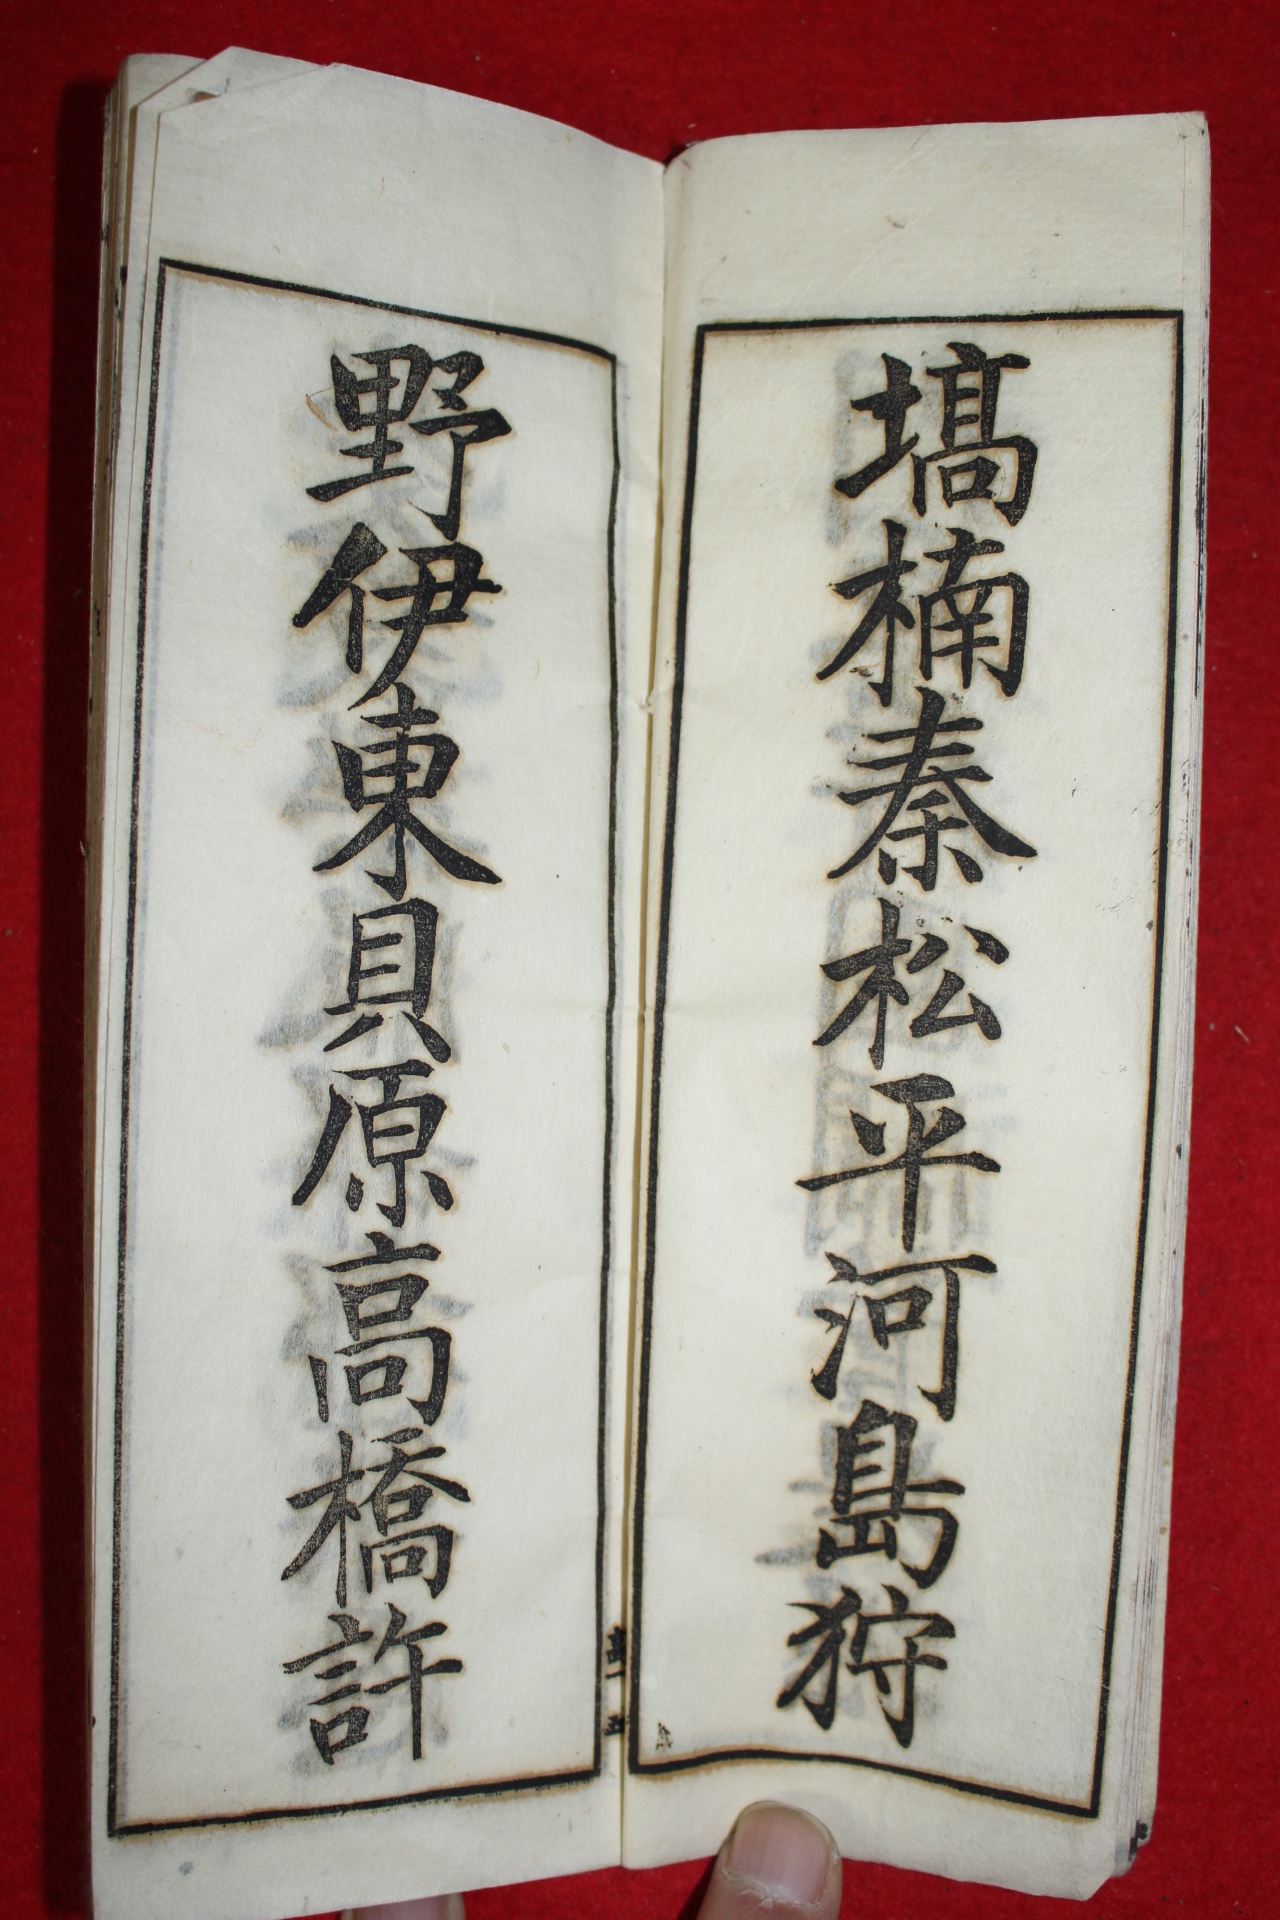 塙楠秦松平河島狩
野伊東貝原高橋許